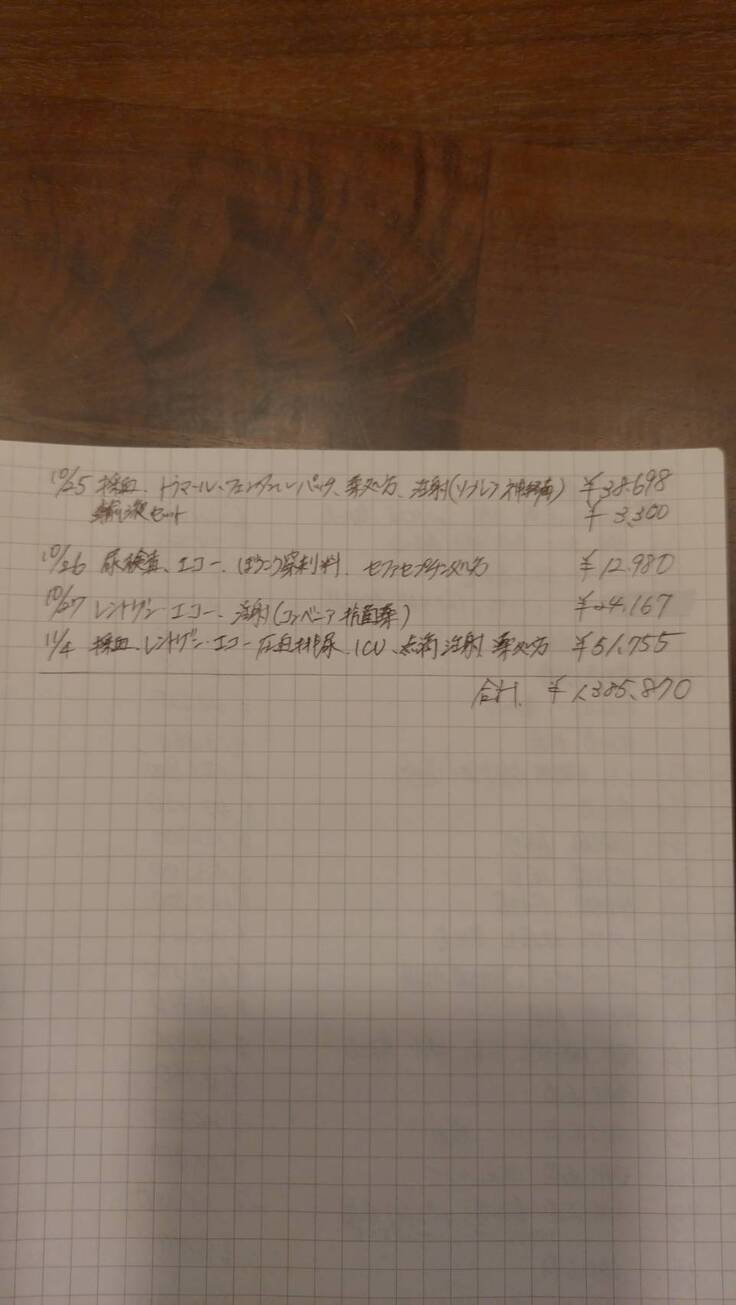 10/25 採血、トラマール、フェンタニルパッチ、薬処方、注射(リブレラ神経痛) ¥38,698
輸液セット ¥3,300
10/26 尿検査、エコー、ぼうこう穿刺料、処方 ¥12,980
10/27 レントゲン・エコー、注射(コンベニア抗菌薬) ¥24,167
11/4 採血、レントゲン・エコー圧迫排尿、ICU、点滴注射、薬処方 ¥51,755
合計 ¥1,385,870